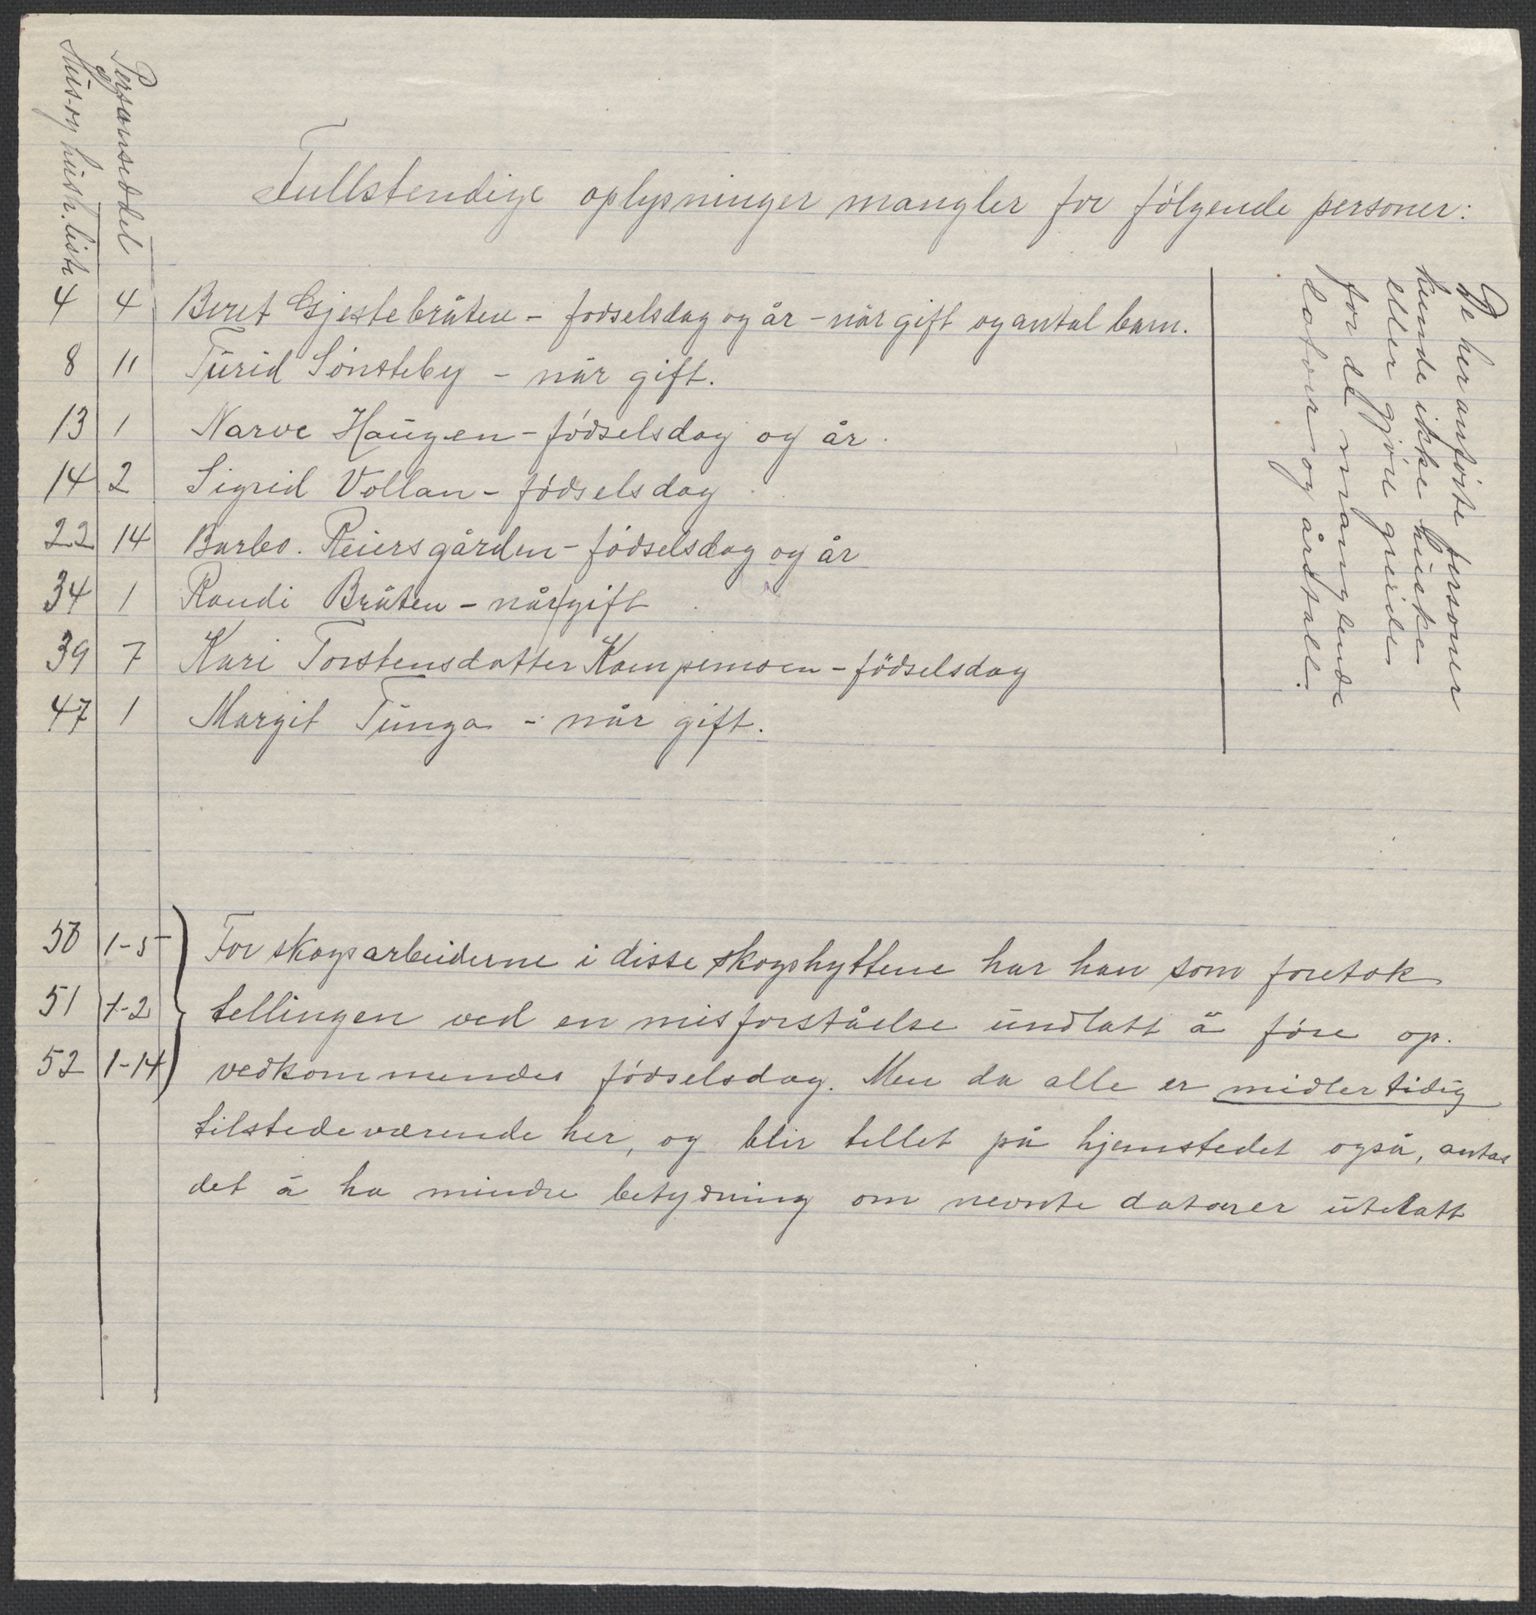 Hus- og hush. liste
Personseddel
Fullstendige oplysninger mangler for følgende personer:
4 4 Beret Gjestebråten - fødselsdag og år - når gift og antal barn.
8 11 Turid Sönsteby - når gift.
13 1 Narve Haugen - fødselsdag og år.
14 2 Sigrid Vollan - fødselsdag
22 14 Barbo. Reiersgården - fødselsdag og år
34 1 Randi Bråten - når gift
39 7 Kari Torstensdatter Kampemoen - fødselsdag
47 1 Margit Tunga - når gift.
De her anførte personer
kunde ikke huske
eller gjöre greide
for de manglende
datoer og årstall.
50 1-5 For skogsarbeiderne i disse skogshyttene har han som foretok
51 1-2 tellingen ved en misforståelse undlatt å føre op.
52 1-14 vedkommendes fødselsdag. Men da alle er midlertidig
tilstedeværende her, og blir tellet på hjemstedet også, antas
det å ha mindre betydning om nevnte datoer utelatt